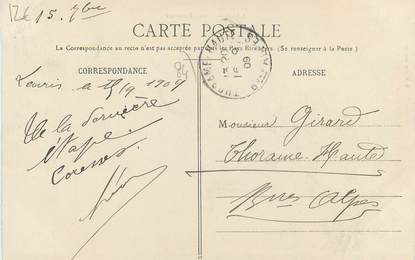 15. 7bre
CARTE POSTALE
La Correspondance au recto n'est pas acceptée par tous les Pays Etrangers. (Se renseigner à la Poste)
CORRESPONDANCE
ADRESSE
le 15/9 1909
De la dernière
étape.
Caresses.
Monsieur Girard
Thorame-Haute
Bses Alpes